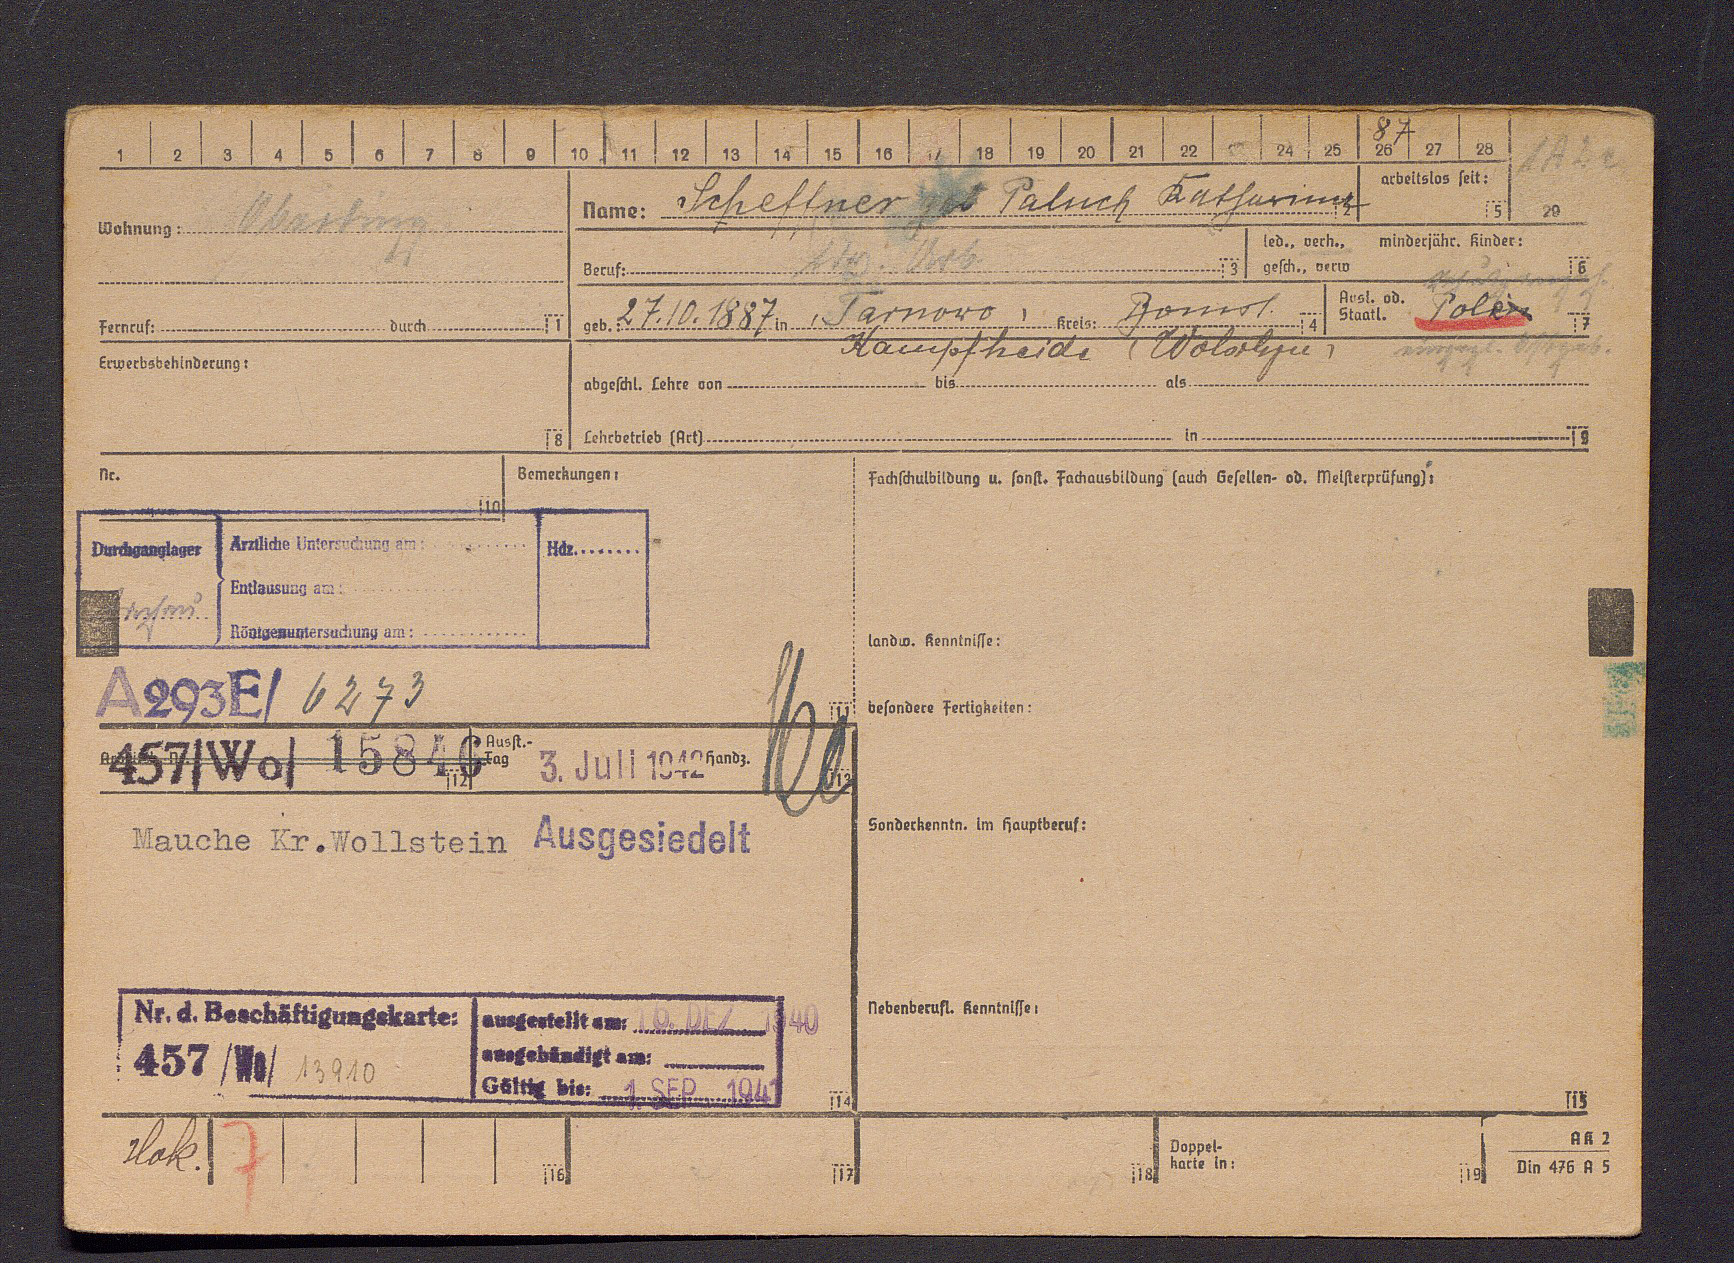 1 2 3 4 5 6 7 8 9 10 11 12 13 14 15 16 17 18 19 20 21 22 24 25 26 27 28
87
Name: Scheffner geb Paluch Katharina 2
arbeitslos seit: 5
29
Wohnung:
Beruf: 3
led., verh., gesch., verw
minderjähr. Kinder: 6
Fernruf: durch 1
geb.: 27.10.1887 in Tarnowo Kreis: Bomst. 4
Ausl. od. Staatl. Polen 7
Kampfheide
Erwerbsbehinderung: 8
abgeschl. Lehre von bis als
Lehrbetrieb (Art) in 9
Nr. 10
Bemerkungen:
Fachschulbildung u. sonst. Fachausbildung (auch Gesellen- od. Meisterprüfung):
Durchganglager
Ärztliche Untersuchung am:
Hdz.
Entlausung am:
Röntgenuntersuchung am:
landw. Kenntnisse:
A293E/ 6273
11
besondere Fertigkeiten:
457/Wo/ 15846 12
Ausst.-Tag 3. Juli 1942 Handz. 13
Mauche Kr.Wollstein Ausgesiedelt
Sonderkenntn. im Hauptberuf:
Nebenberufl. Kenntnisse:
Nr. d. Beschäftigungskarte:
457 /Wo/ 13910
ausgestellt am: 16. DEZ 1940
ausgehändigt am:
Gültig bis: 1. SEP. 1941
14
15
Hok. 7
16
17
18
Doppel-karte in: 19
AK 2
Din 476 A 5